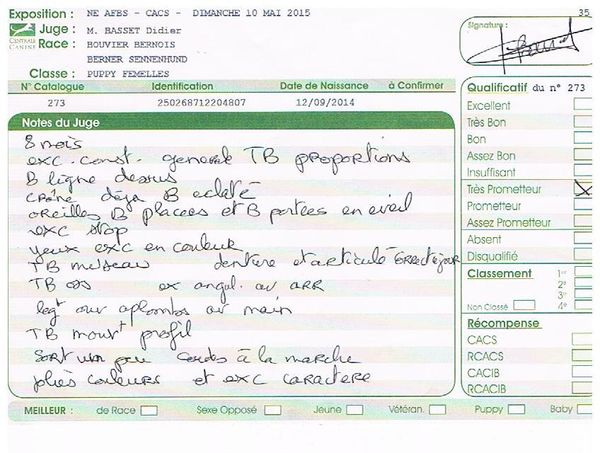 Exposition : NE AFES - CACS - DIMANCHE 10 MAI 2015 35
Juge : M. BASSET Didier
Signature :
CENTRALE CANINE
Race : BOUVIER BERNOIS
BERNER SENNENHUND
Classe : PUPPY FEMELLES
N° Catalogue Identification Date de Naissance à Confirmer
273 250268712204807 12/09/2014
Qualificatif du n° 273
Excellent
Très Bon
Bon
Assez Bon
Insuffisant
Très Prometteur X
Prometteur
Assez Prometteur
Absent
Disqualifié
Classement 1er
2e
3e
Non Classé 4e
Récompense
CACS
RCACS
CACIB
RCACIB
Notes du Juge
8 mois
exc. const. generale TB proportions
B ligne dessus
crâne déjà B eclaté
oreilles B placees et B portées en eveil
exc stop
yeux exc en couleur
TB museau denture et articulé
TB os ex angul. av ARR
legt our aplombs av main
TB mouvt profil
sort un peu coudes à la marche
jolies couleurs et exc caractere
MEILLEUR : de Race Sexe Opposé Jeune Vétéran. Puppy Baby